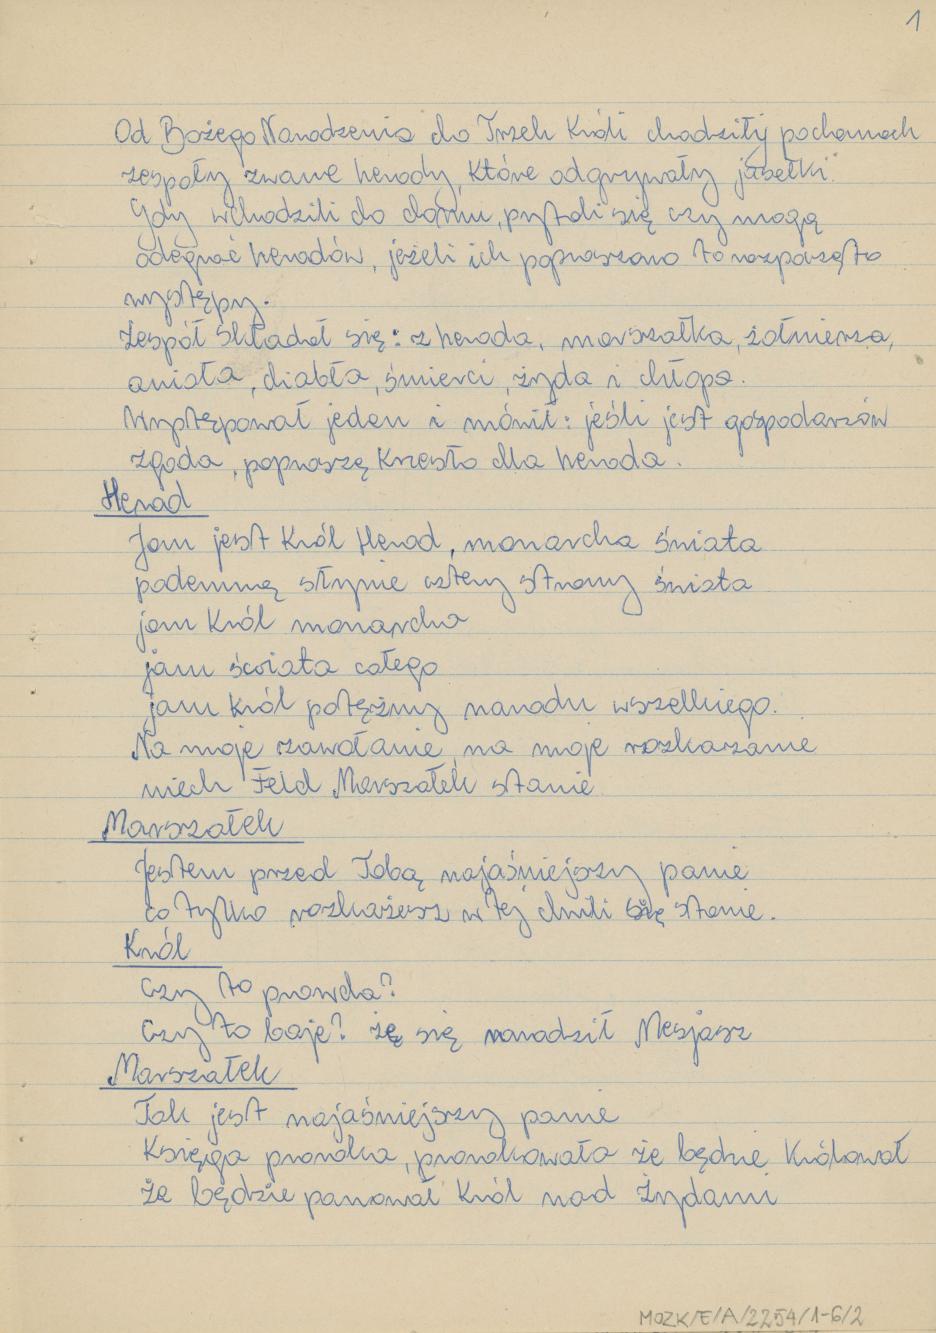 1
Od Bożego Narodzenia do Trzech Króli chodziły po domach
zespoły zwane herody, które odgrywały jasełki.
Gdy wchodzili do domu, pytali się czy mogą
odegrać herodów, jeżeli ich poproszono to rozpoczęto
występy.
Zespół składał się: z heroda, marszałka, żołnierza,
anioła, diabła, śmierci, żyda i chłopa.
Występował jeden i mówił: jeśli jest gospodarzów
zgoda, poproszę krzesło dla heroda.
Herod
Jam jest Król Herod, monarcha świata
podemną słynie cztery strony świata
jam Król monarcha
jam świata całego
jam Król potężny narodu wszelkiego.
Na moje zawołanie, na moje rozkazanie
niech Feld Marszałek stanie
Marszałek
Jestem przed Tobą najaśniejszy panie
co tylko rozkażesz w tej chwili się stanie.
Król
Czy to prawda?
Czy to baje? żę się narodził Mesjasz
Marszałek
Tak jest najaśniejszy panie
Księga proroka, prorokowała że będzie Królował
że będzie panował Król nad Żydami
MOZK/E/A/2254/1-6/2